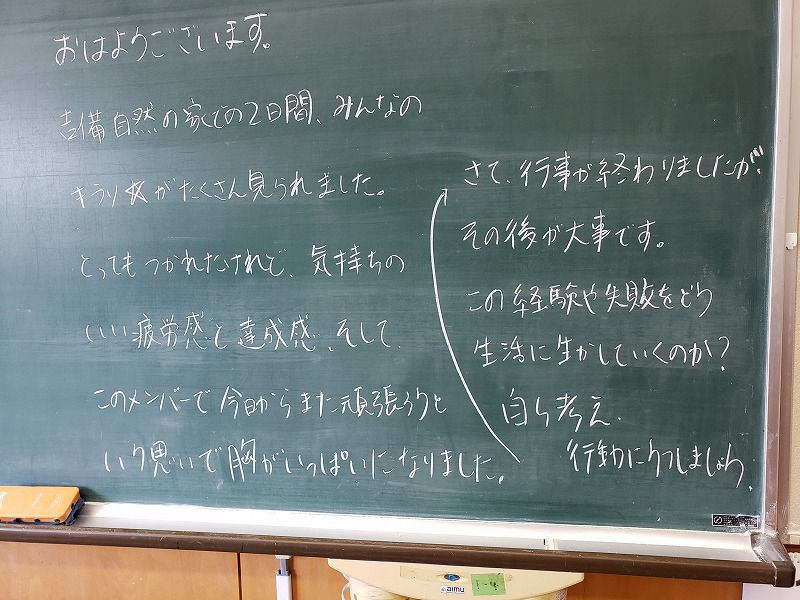 おはようございます。
吉備自然の家での2日間、みんなの
キラリ☆がたくさん見られました。
とってもつかれたけれど、気持ちの
いい疲労感と達成感、そして、
このメンバーで今日からまた頑張ろうと
いう思いで胸がいっぱいになりました。
さて、行事が終わりましたが、
その後が大事です。
この経験や失敗をどう
生活に生かしていくのか?
自ら考え、
行動にうつしましょう。
aimu